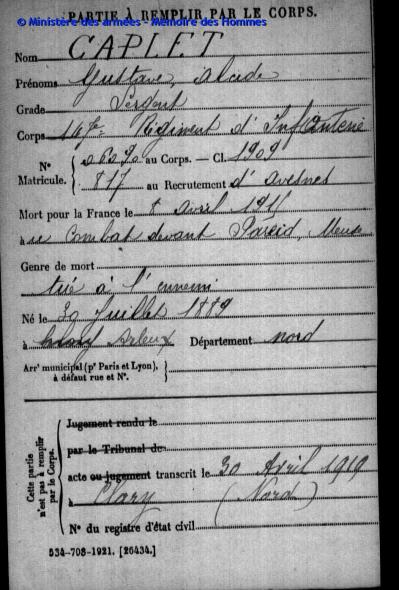 PARTIE À REMPLIR PAR LE CORPS.
© Ministère des armées - Mémoire des Hommes
Nom CAPLET
Prénoms Gustave, Alcide
Grade Sergent
Corps 147e Régiment d'Infanterie
N° Matricule. { 06290 au Corps. — Cl. 1909
817 au Recrutement d'Avesnes
Mort pour la France le 8 avril 1915
à au Combat devant Pareid, Meuse
Genre de mort
tué à l'ennemi
Né le 30 Juillet 1889
à Département Nord
Arrt municipal (pr Paris et Lyon), à défaut rue et N°. }
Cette partie n'est pas à remplir par le Corps.
Jugement rendu le
par le Tribunal de
acte ou jugement transcrit le 30 Avril 1919
à Clary (Nord)
N° du registre d'état civil
534-708-1921. [26434.]